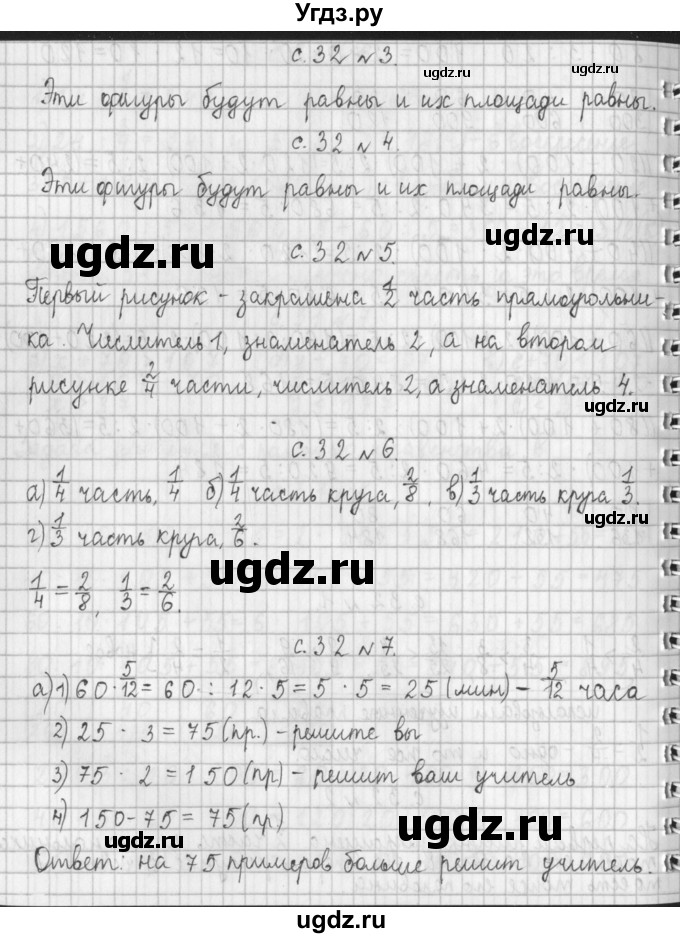 Угдз.ру
с. 32 №3.
ugdz.ru
ugdz.ru
Эти фигуры будут равны и их площади равны.
с. 32 №4.
Эти фигуры будут равны и их площади равны.
ugdz.ru
ugdz.ru
с. 32 №5.
Первый рисунок - закрашена 1/2 часть прямоугольни-
ка. Числитель 1, знаменатель 2, а на втором
ugdz.ru
рисунке 2/4 части, числитель 2, а знаменатель 4.
ugdz.ru
с. 32 №6.
а) 1/4 часть, 1/4 б) 1/4 часть круга, 2/8, в) 1/3 часть круга 1/3.
ugdz.ru
г) 1/3 часть круга, 2/6.
ugdz.ru
1/4 = 2/8, 1/3 = 2/6.
с. 32 №7.
ugdz.ru
а) 1) 60 · 5/12 = 60 : 12 · 5 = 5 · 5 = 25 (мин) - 5/12 часа
2) 25 · 3 = 75 (пр.) - решите вы
3) 75 · 2 = 150 (пр) - решит ваш учитель
4) 150 - 75 = 75 (пр)
ugdz.ru
Ответ: на 75 примеров больше решит учитель.
ugdz.ru
ugdz.ru